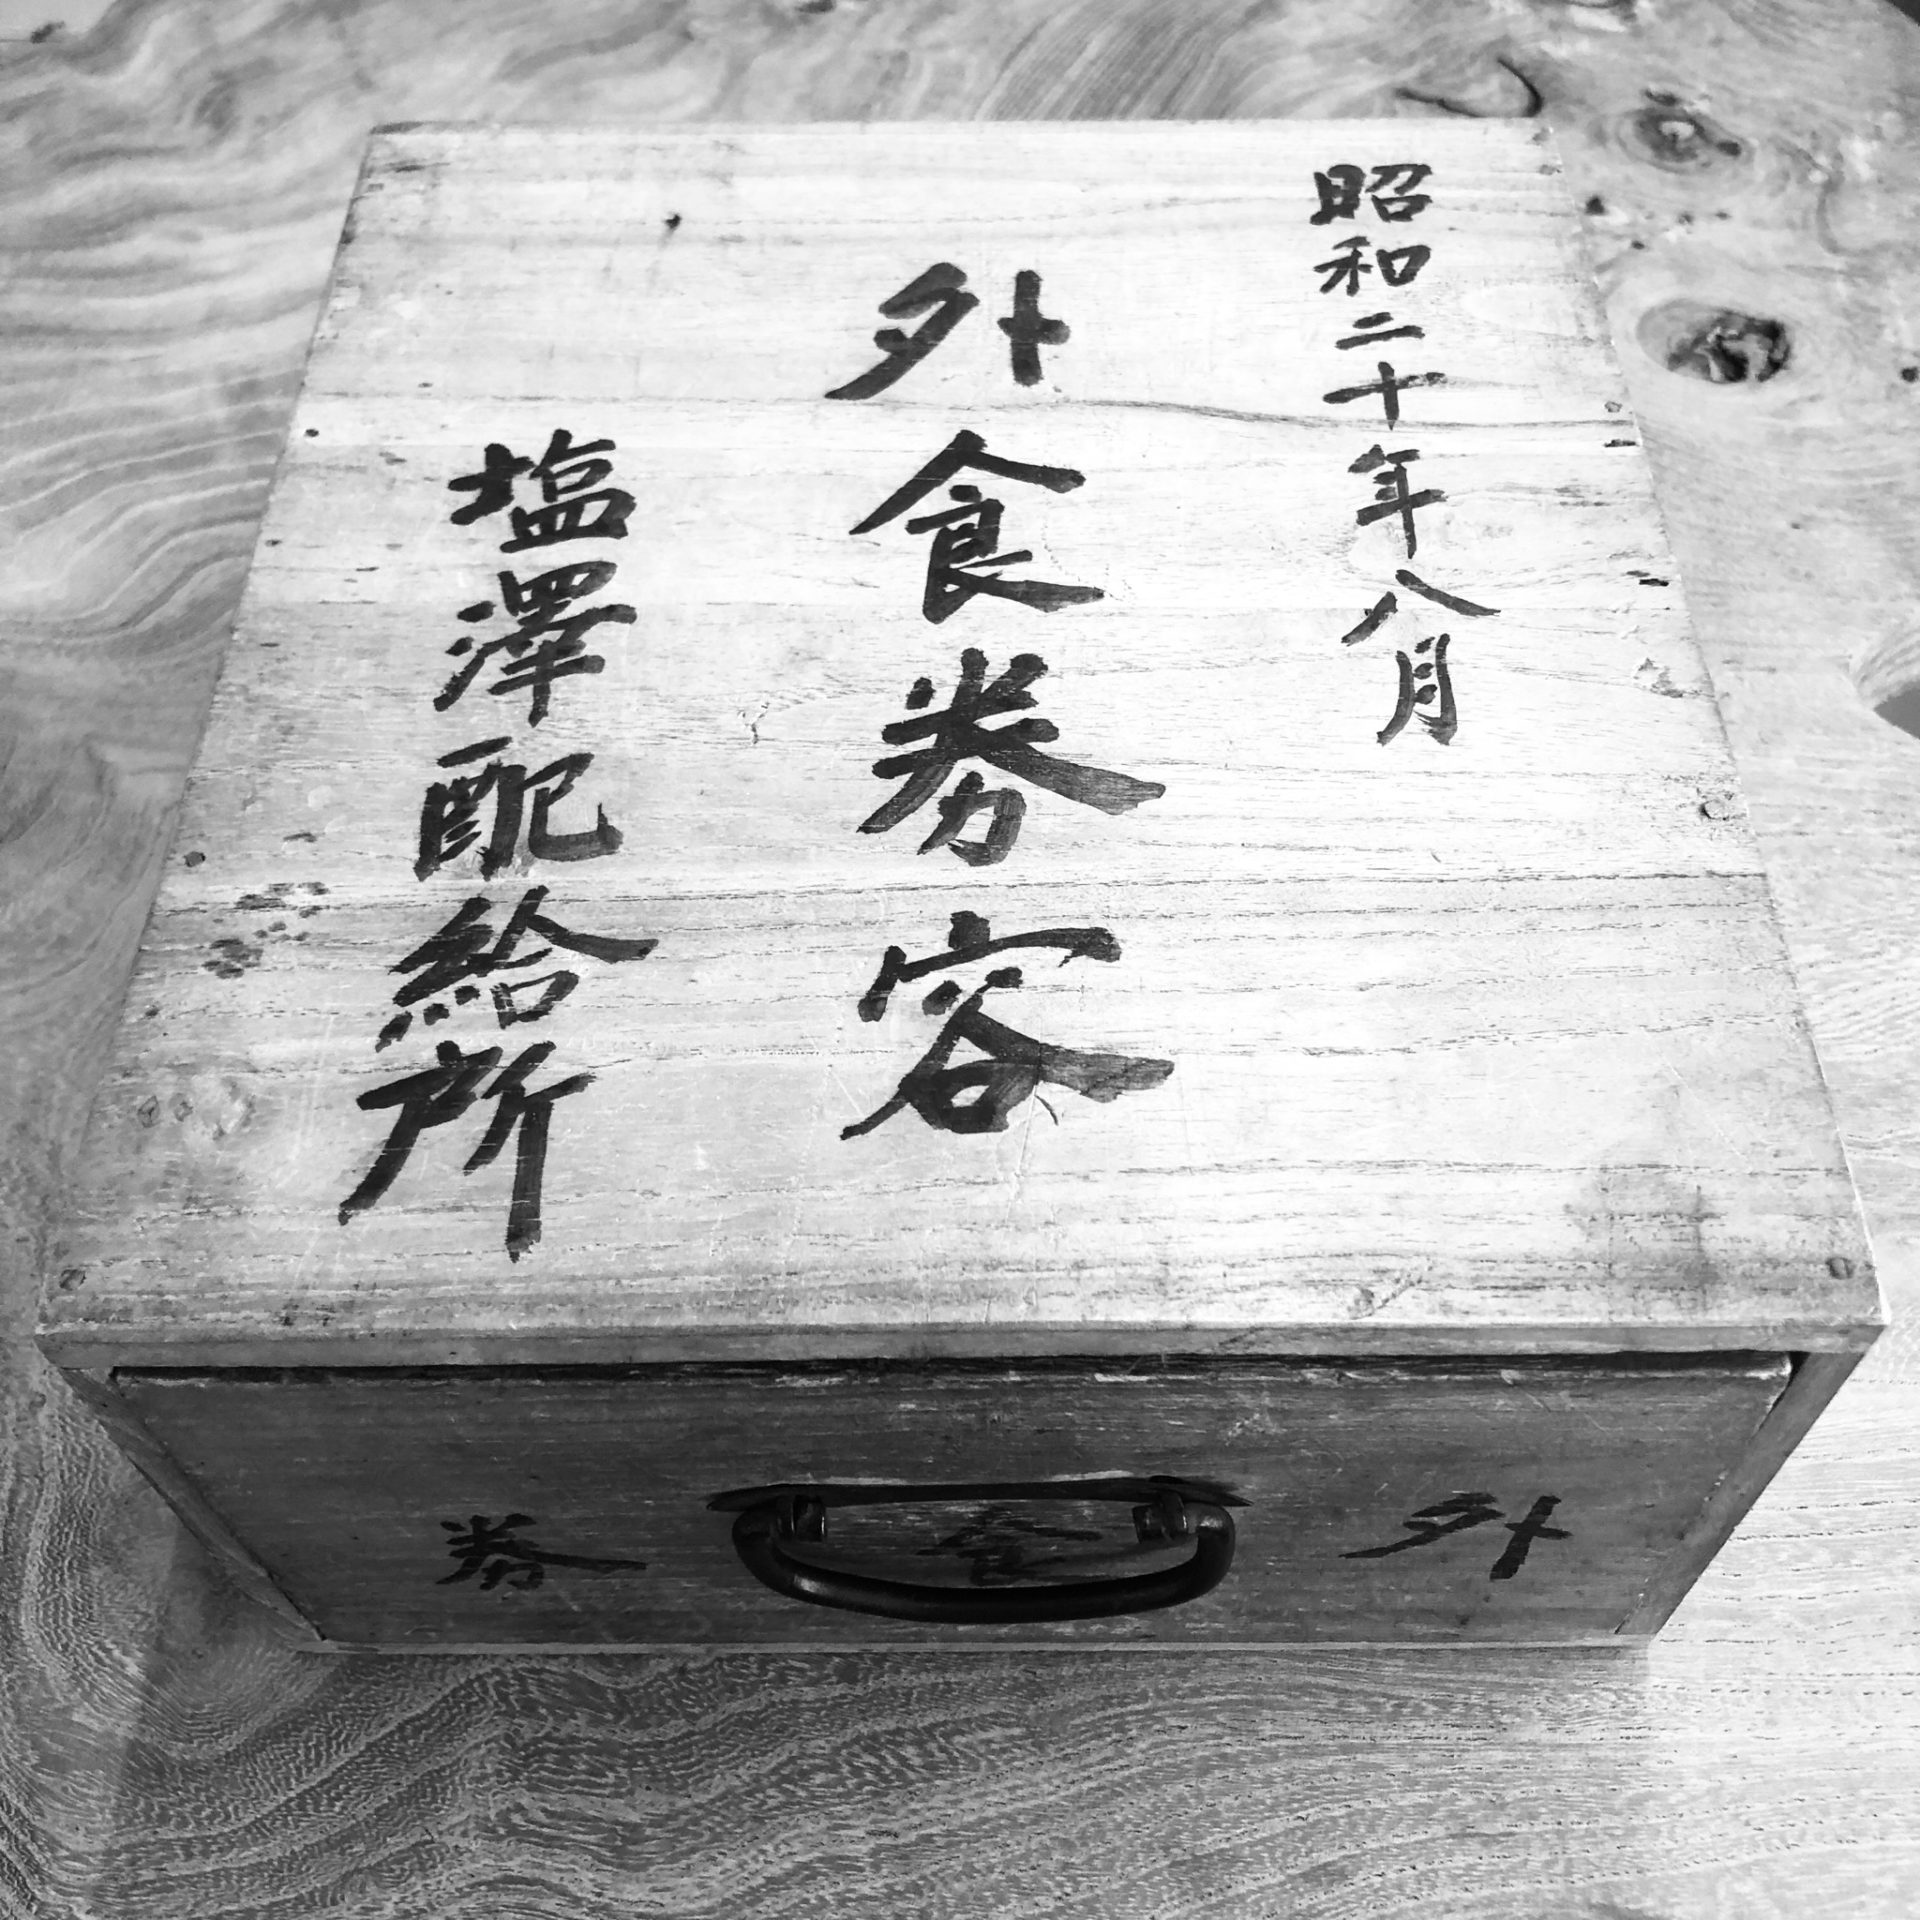 昭和二十年八月
外食券容
塩澤配給所
外食券